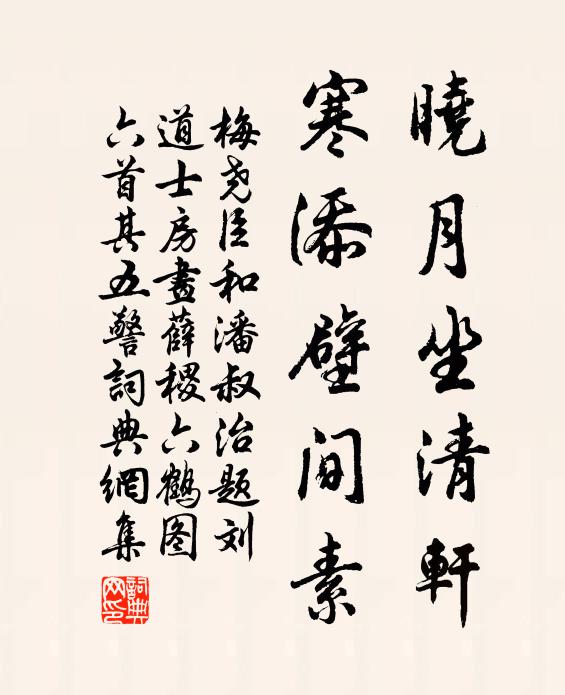 曉月坐清軒
寒添壁間素
梅尧臣和潘叔治題刘
道士房畫薛稷六鶴图
六首其五警詞典網集
詞典網印